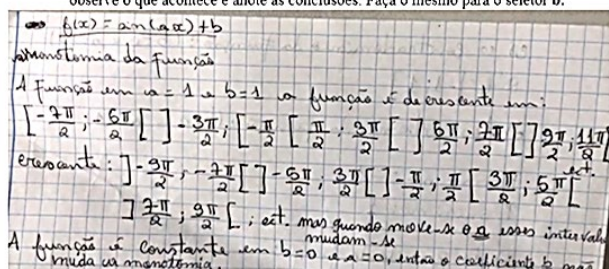 observe o que acontece e anote as conclusões. Faça o mesmo para o seletor b.
f(x) = sin(ax) + b
monotomia da função
A função em a = 1 e b = 1 a função é decrescente em:
[-7π/2; -5π/2[ ]-3π/2; [-π/2 [ π/2; 3π/2 [ ] 5π/2; 7π/2 [ ] 9π/2; 11π/2[
crescente: ]-9π/2; -7π/2 [ ]-5π/2; 3π/2 [ ]-π/2; π/2 [ 3π/2; 5π/2 [ ect.
] 7π/2; 9π/2 [; ect. mas quando move-se o a esses intervalo
mudam-se
A função é constante em b=0 e a=0, então o coeficiente b não
muda a monotomia.